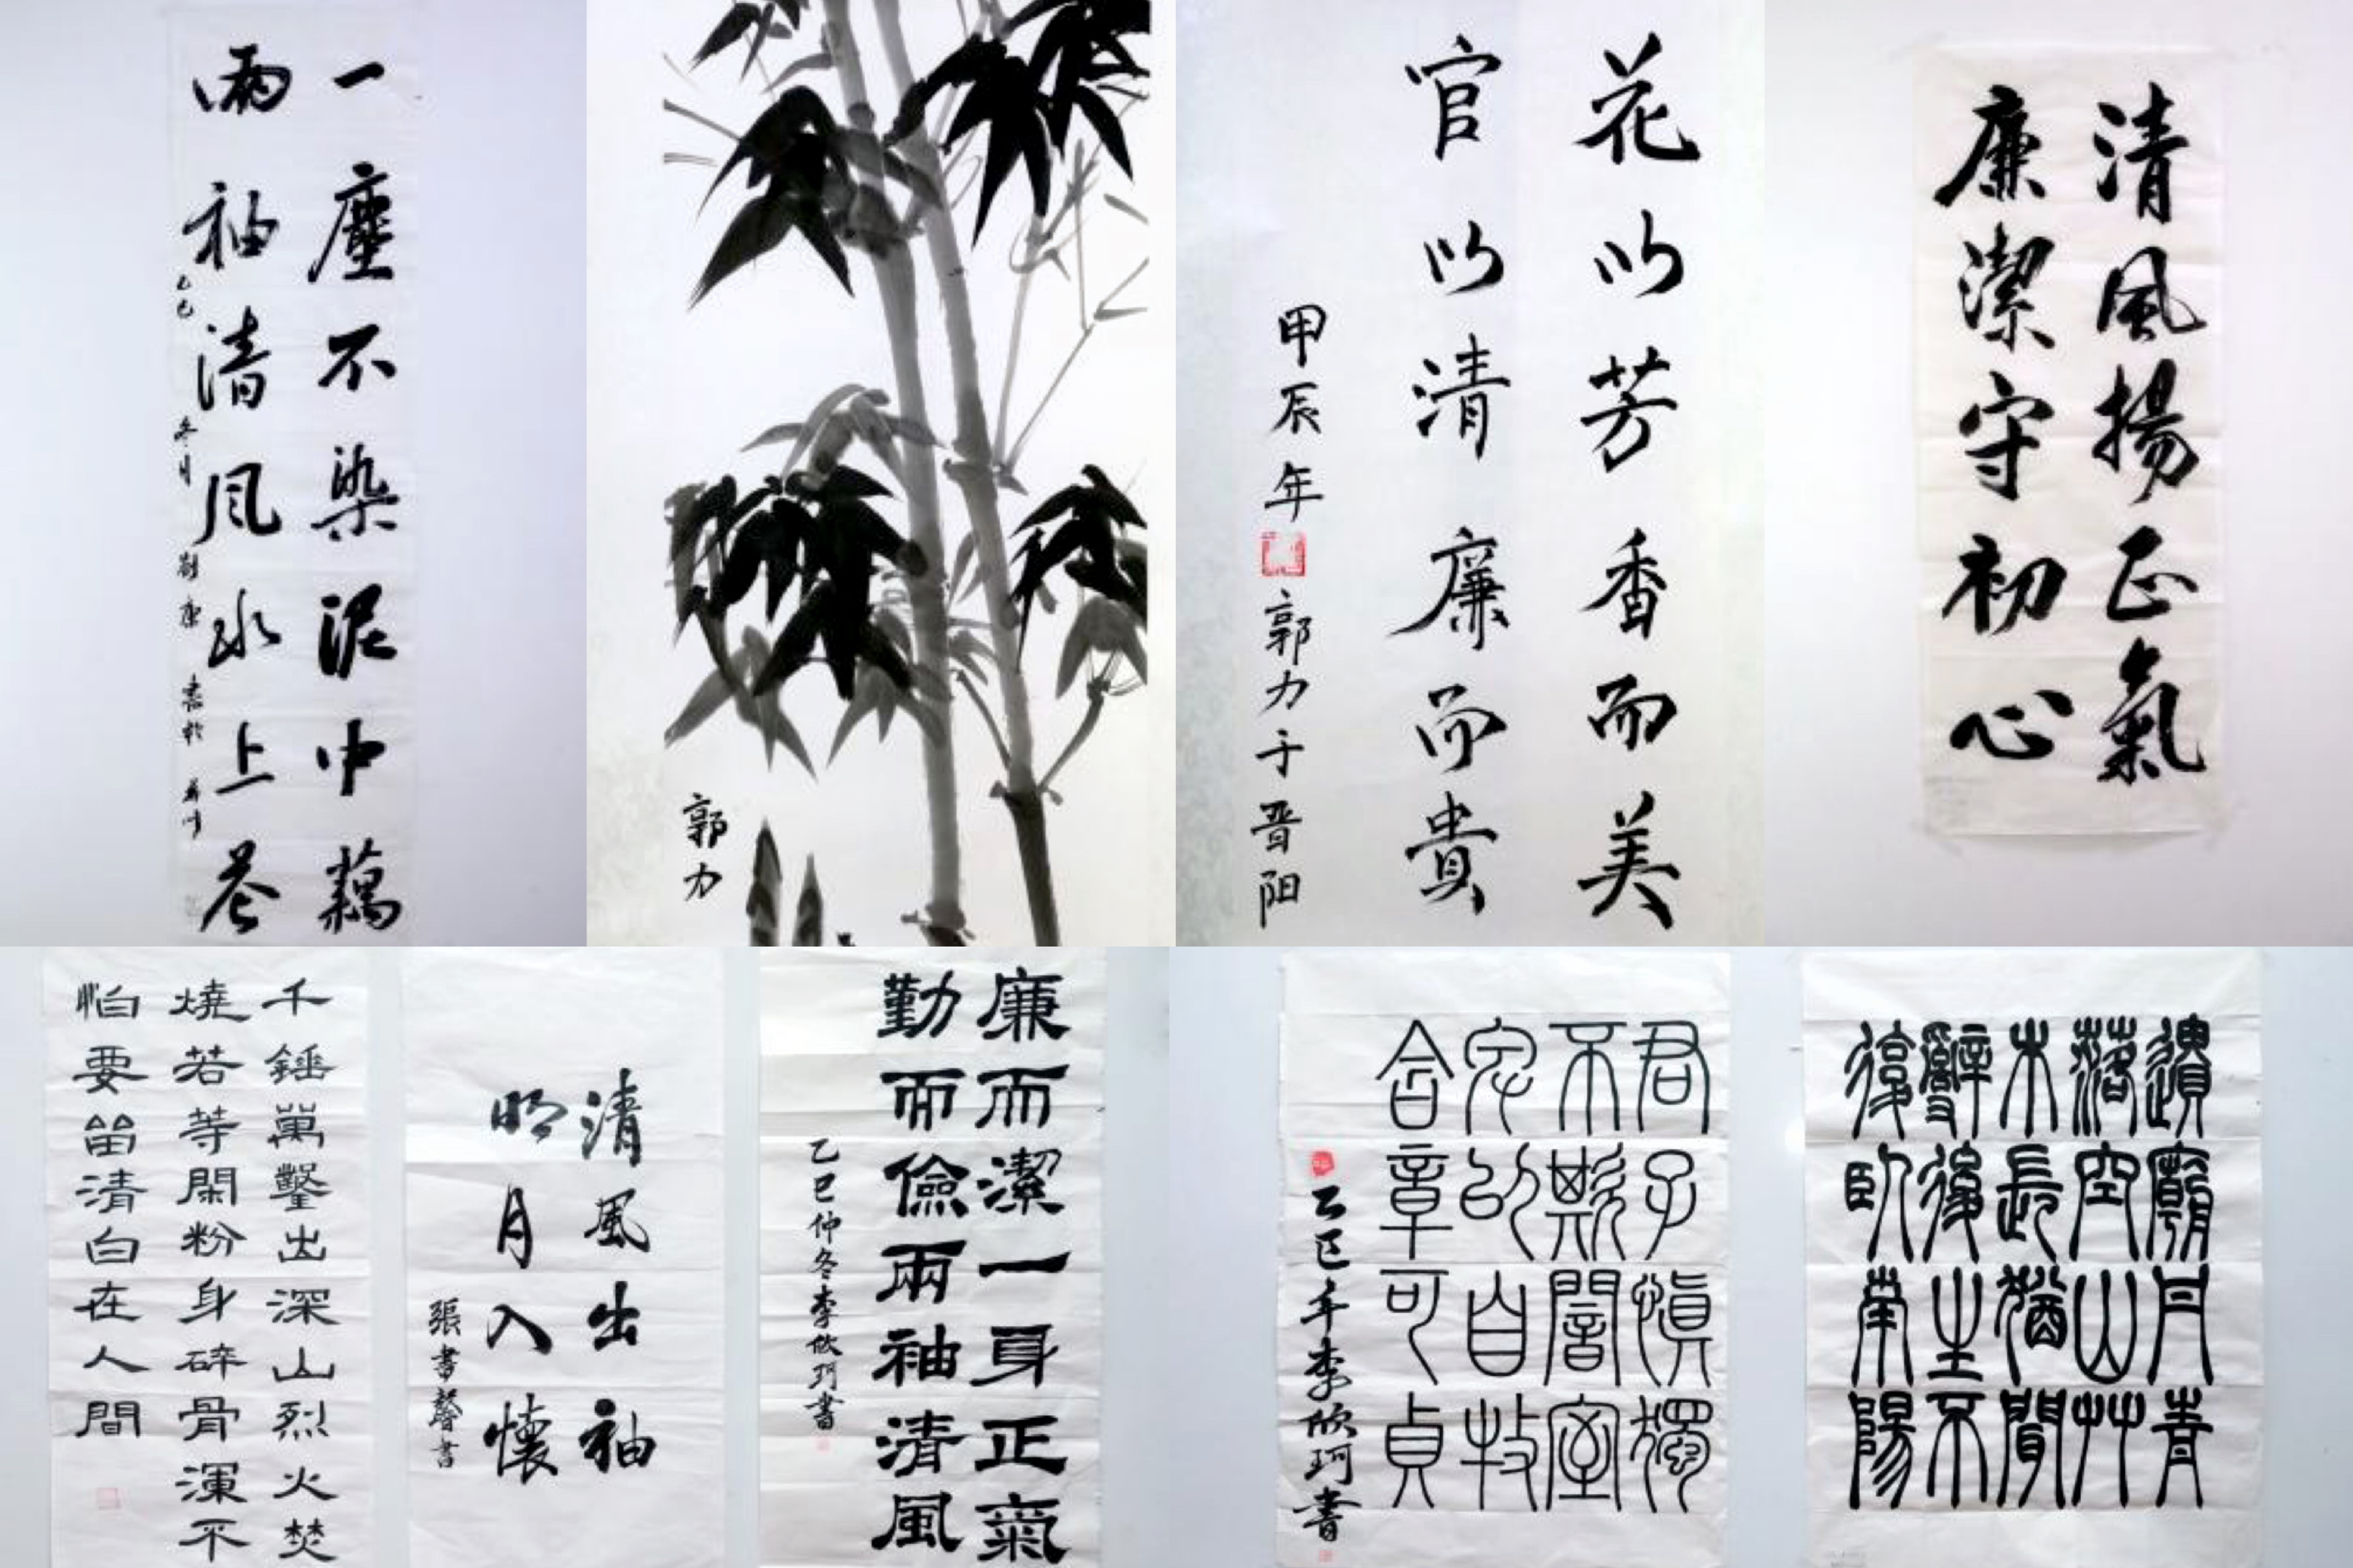 一塵不染泥中藕
兩袖清風水上
乙巳冬月劉康書於
郭力
花以芳香而美
官以清廉而貴
甲辰年郭力于晋阳
清風揚正氣
廉潔守初心
千錘萬鑿出深山烈火焚
燒若等閑粉身碎骨渾不
怕要留清白在人間
清風出袖
明月入懷
張書馨書
廉而潔一身正氣
勤而儉兩袖清風
乙巳仲冬李欣珂書
君子慎獨
不欺闇室
卑以自牧
含章可貞
乙巳年李欣珂書
遺廟丹青
落空山艸
木長猶聞
辭後主不
復臥南陽